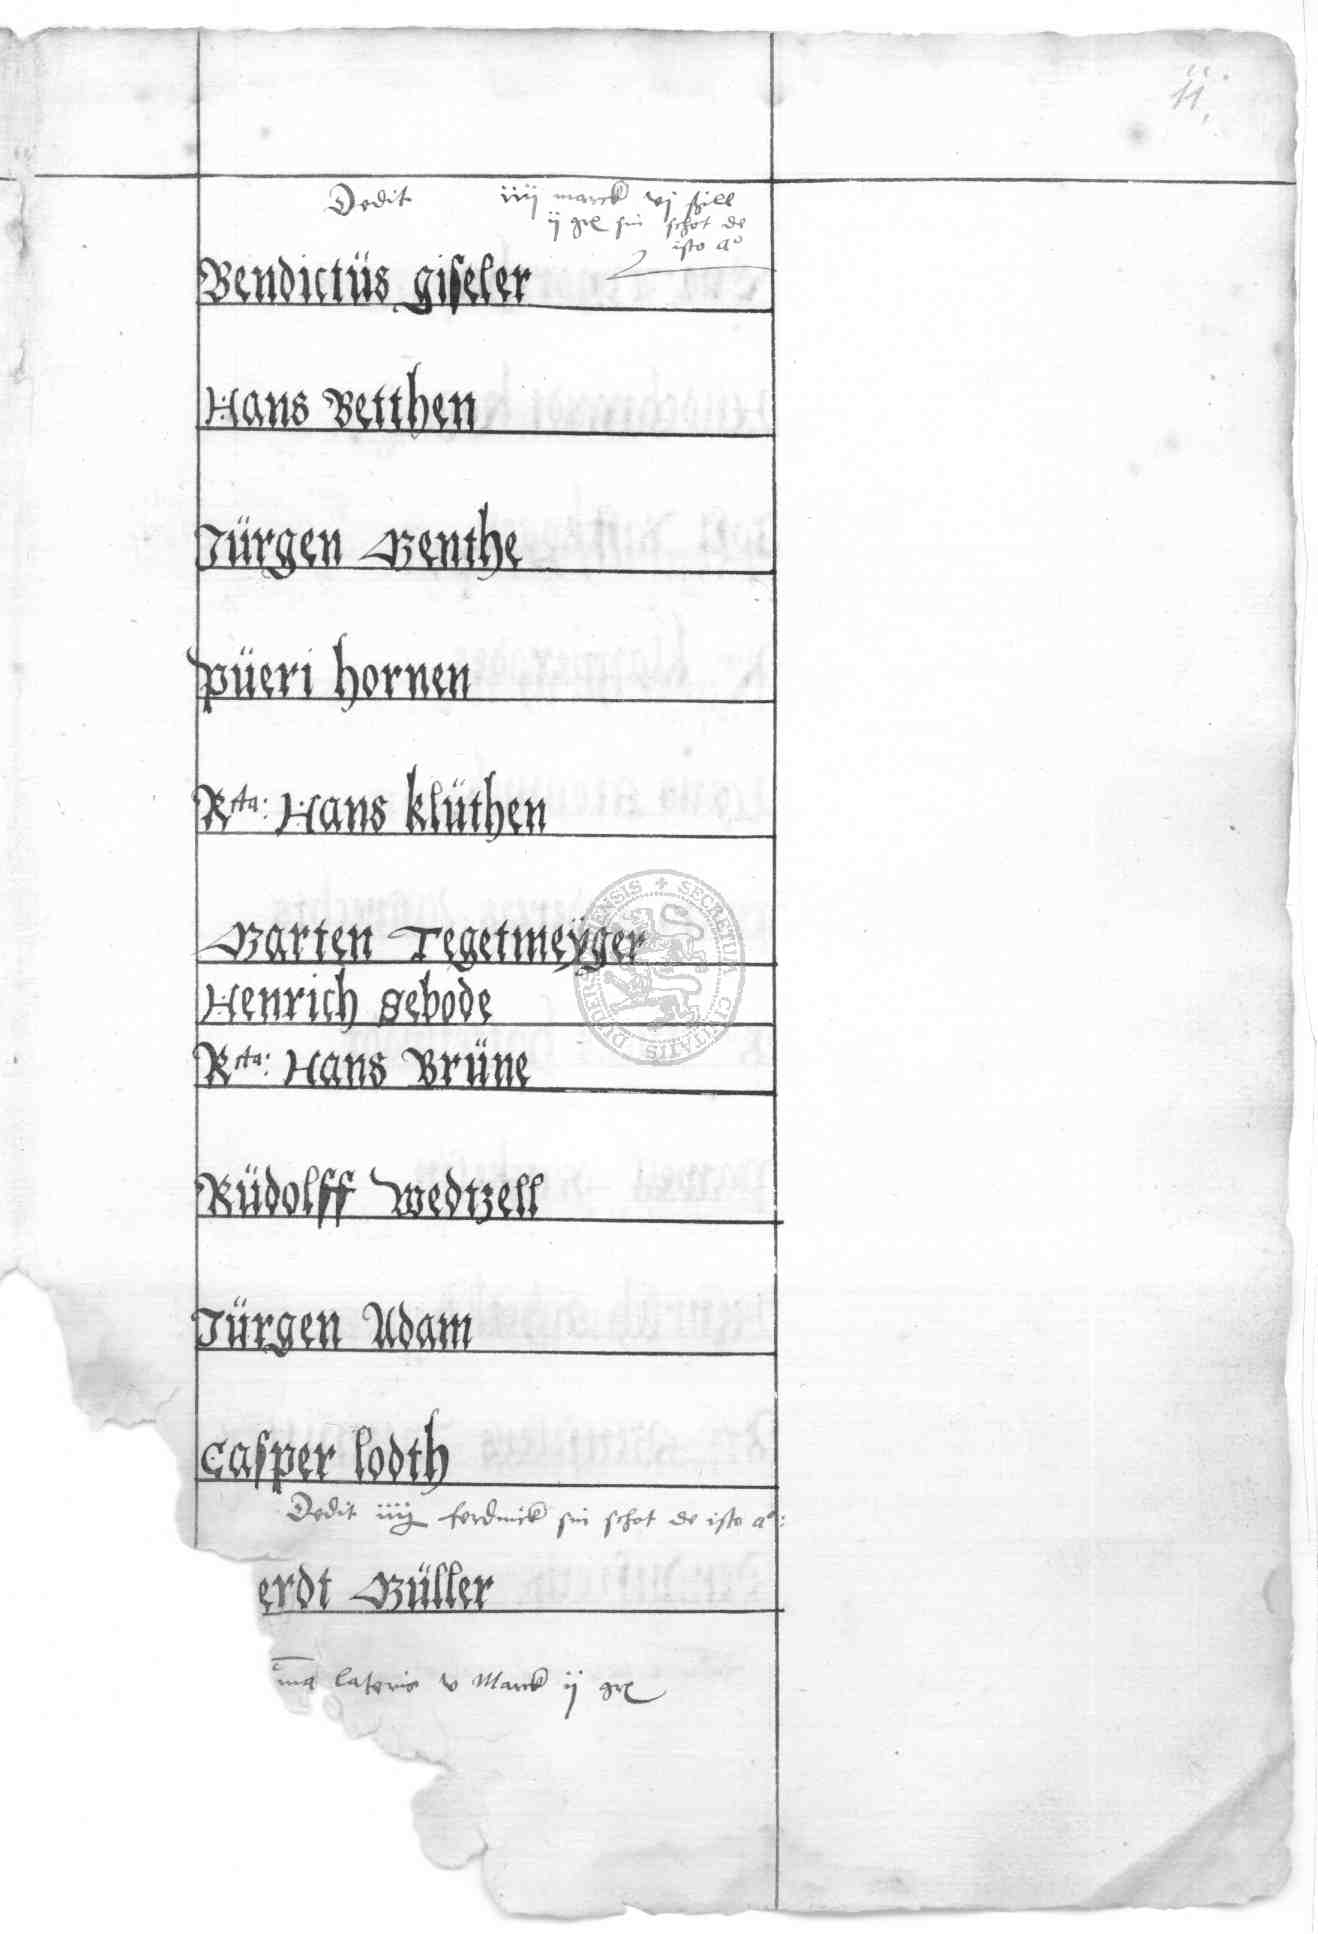 11
Dedit iiij marck vj schill
ij gr sin schot de
isto a°
Bendictüs giseler
Hans Betthen
Jürgen Benthe
püeri hornen
Rcta: Hans klüthen
Barten Tegetmeÿger
Henrich Sebode
Rcta: Hans Brüne
Rüdolff Wedtzell
Jürgen Adam
Casper lodth
Dedit iiij ferdinck sin schot de isto a°:
erdt Büller
ma lateris v Marck ij gr
SECRETUM CIVITATIS